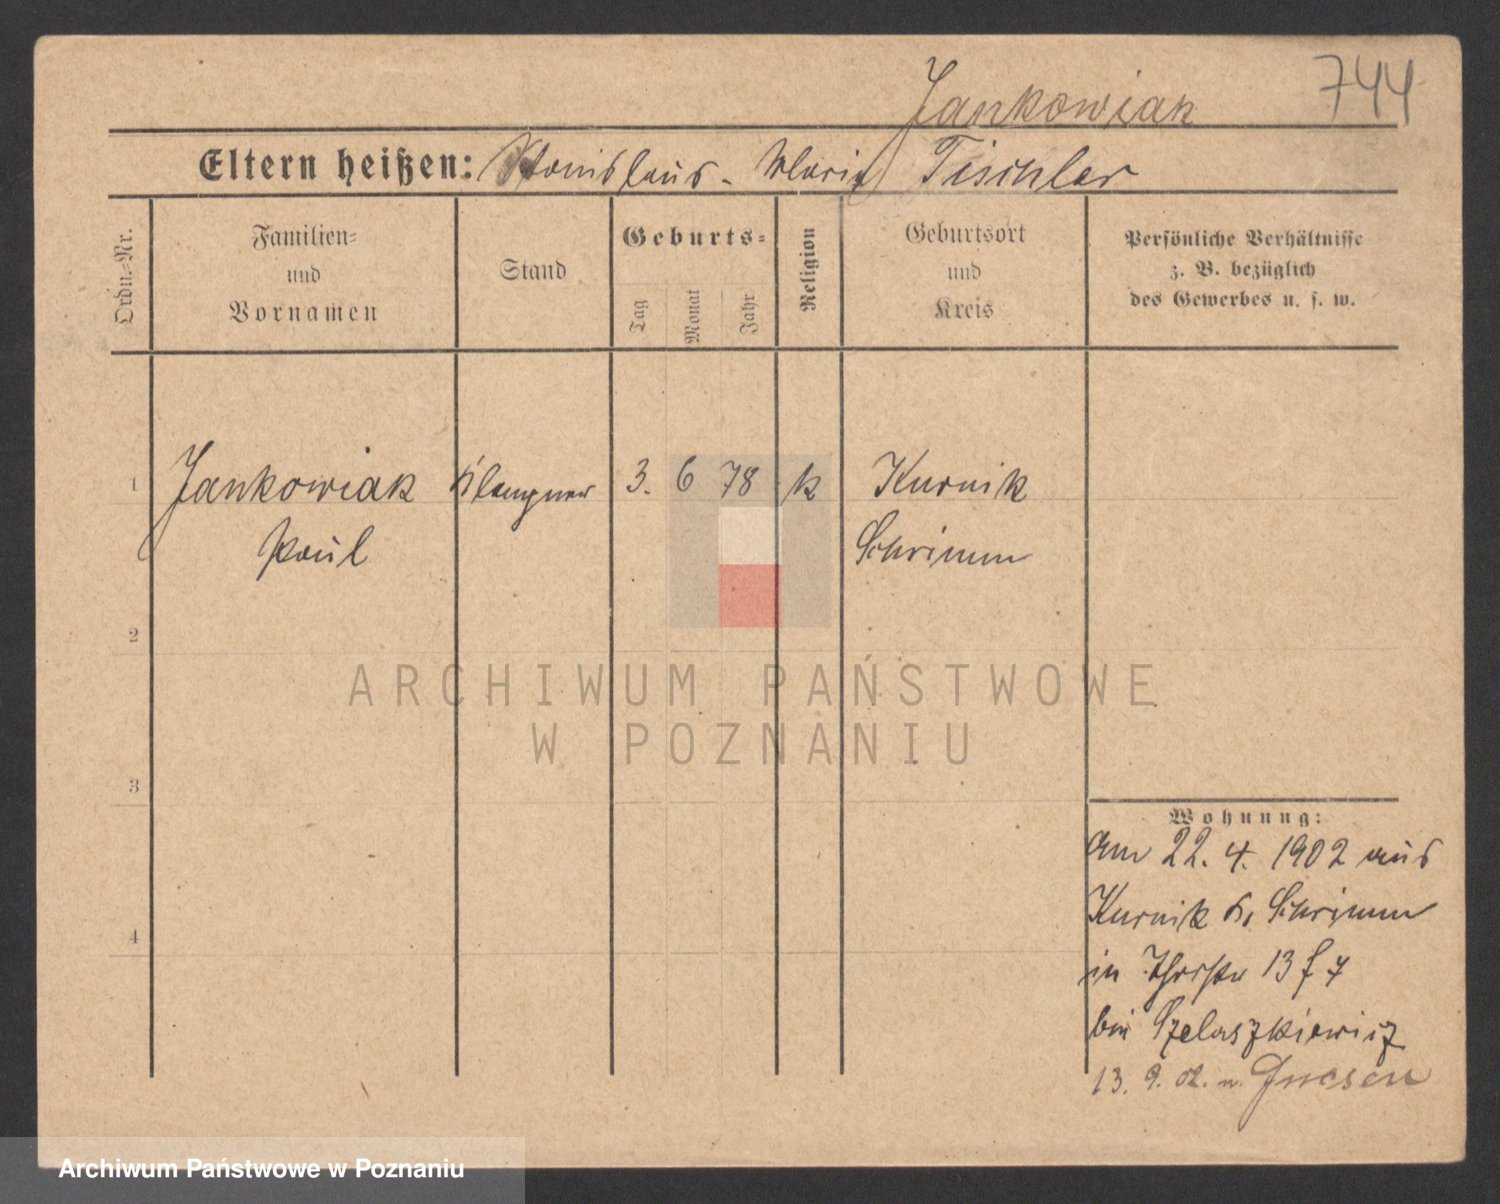 Jankowiak 744
Eltern heißen: Stanislaus - Maria Tischler
Ordn.-Nr.
Familien-
und
Vornamen
Stand
Geburts-
Tag
Monat
Jahr
Religion
Geburtsort
und
Kreis
Persönliche Verhältnisse
z. B. bezüglich
des Gewerbes u. s. w.
1 Jankowiak Klempner 3. 6 78 k Kurnik
Paul Schrimm
2
ARCHIWUM PAŃSTWOWE
W POZNANIU
3
Wohnung:
am 22. 4. 1902 aus
Kurnik Kr. Schrimm
4
in 13
bei Szelaszkiewicz
13. 9. 02. n. Gnesen
Archiwum Państwowe w Poznaniu